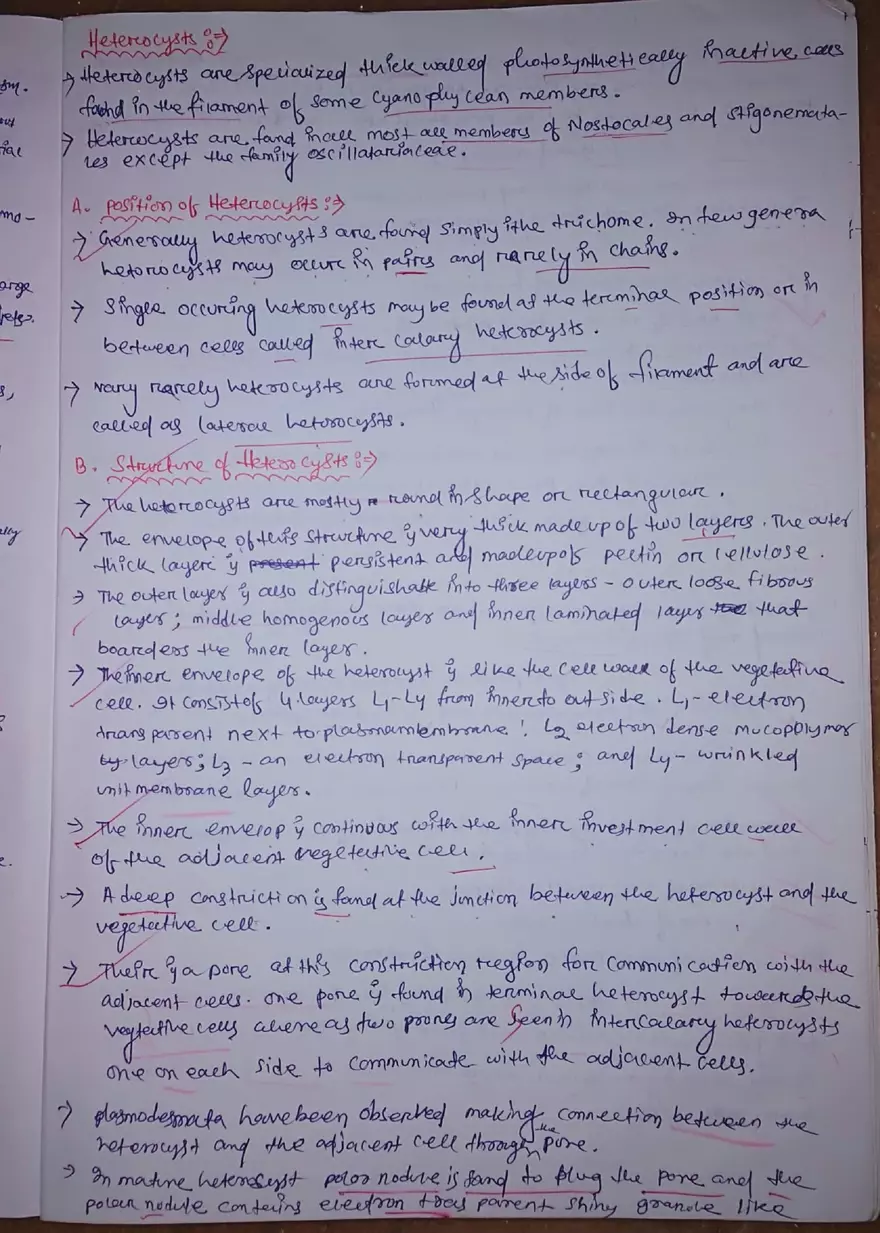 sm.
mo-
arge
s,
lly
e.
Heterocysts :⇒
→ Heterocysts are specialized thick walled photosynthetically inactive cells
found in the filament of some cyanophycean members.
→ Heterocysts are found in all most all members of Nostocales and stigonemata-
les except the family oscillatariaceae.
A. Position of Heterocysts :⇒
→ Generally heterocysts are found simply i the trichome. In few genera
heterocysts may occure in paires and rarely in chains.
→ Single occuring heterocysts may be found at the terminal position or in
between cells called inter calary heterocysts.
→ Vary rarely heterocysts are formed at the side of firament and are
called as lateral heterocysts.
B. Structure of Heterocysts :⇒
→ The heterocysts are mostly round in shape or rectangular.
→ The envelope of this structure is very thick made up of two layers. The outer
thick layer is present persistent and made up of pectin or cellulose.
→ The outer layer is also distinguishable into three layers - outer loose fibrous
layer; middle homogenous layer and inner laminated layer that
boarders the inner layer.
→ The inner envelope of the heterocyst is like the cell wall of the vegetative
cell. It consist of 4 layers L1-L4 from inner to out side. L1-electron
trans parent next to plasmamembrane; L2 electron dense mucopolymer
layers; L3 - an electron transparent space; and L4 - wrinkled
unit membrane layer.
→ The inner envelop is continuos with the inner investment cell wall
of the adjacent vegetative cell.
→ A deep constriction is fand at the junction between the heterocyst and the
vegetative cell.
→ Their is a pore at this constriction region for communication with the
adjacent cells. One pore is found in terminal heterocyst towards the
vegtative cells where as two prores are seen in intercalary heterocysts
one on each side to communicate with the adjacent cells.
→ plasmodesmata have been observed making connection between the
heterocyst and the adjacent cell through the pore.
→ In mature heterocyst polar nodule is fand to plug the pore and the
polar nodule contains electron trans parent shiny granule like